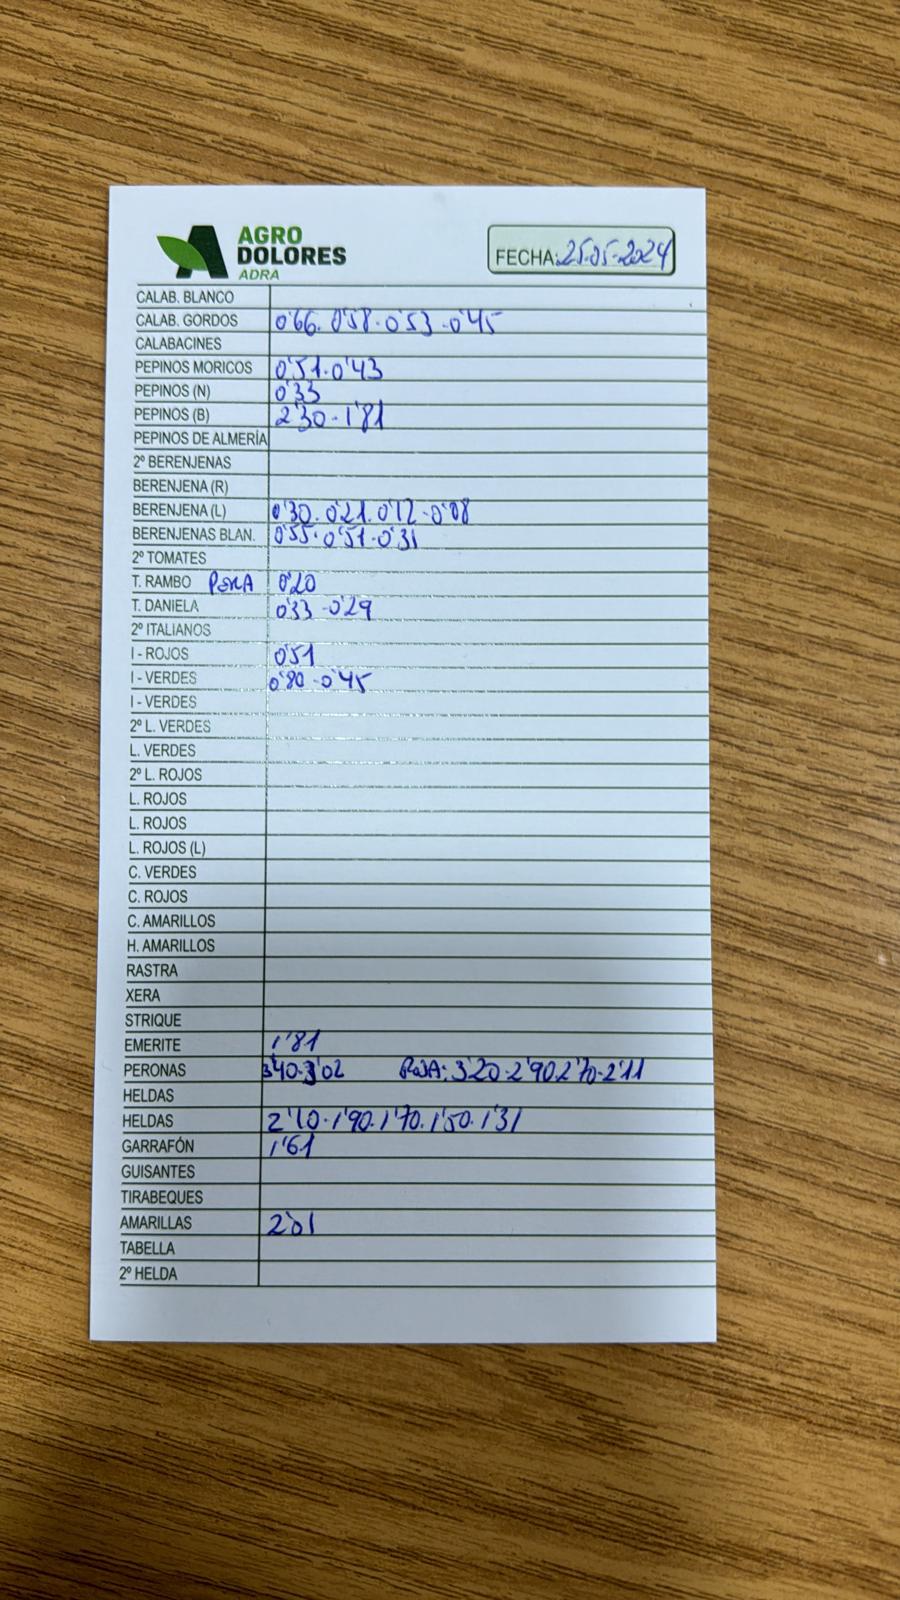 AGRO
DOLORES
ADRA
FECHA: 25-05-2024
CALAB. BLANCO
CALAB. GORDOS 0'66. 0'58. 0'53 - 0'45
CALABACINES
PEPINOS MORICOS 0'51. 0'43
PEPINOS (N) 0'33
PEPINOS (B) 2'30 - 1'81
PEPINOS DE ALMERÍA
2º BERENJENAS
BERENJENA (R)
BERENJENA (L) 0'30. 0'21. 0'12 - 0'08
BERENJENAS BLAN. 0'55. 0'51. 0'31
2º TOMATES
T. RAMBO PERA 0'20
T. DANIELA 0'33 - 0'29
2º ITALIANOS
I - ROJOS 0'51
I - VERDES 0'80 - 0'45
I - VERDES
2º L. VERDES
L. VERDES
2º L. ROJOS
L. ROJOS
L. ROJOS
L. ROJOS (L)
C. VERDES
C. ROJOS
C. AMARILLOS
H. AMARILLOS
RASTRA
XERA
STRIQUE
EMERITE 1'81
PERONAS 3'40. 3'02 ROJA: 3'20 - 2'90. 2'70 - 2'11
HELDAS
HELDAS 2'10. 1'90. 1'70. 1'50. 1'31
GARRAFÓN 1'61
GUISANTES
TIRABEQUES
AMARILLAS 2'01
TABELLA
2º HELDA